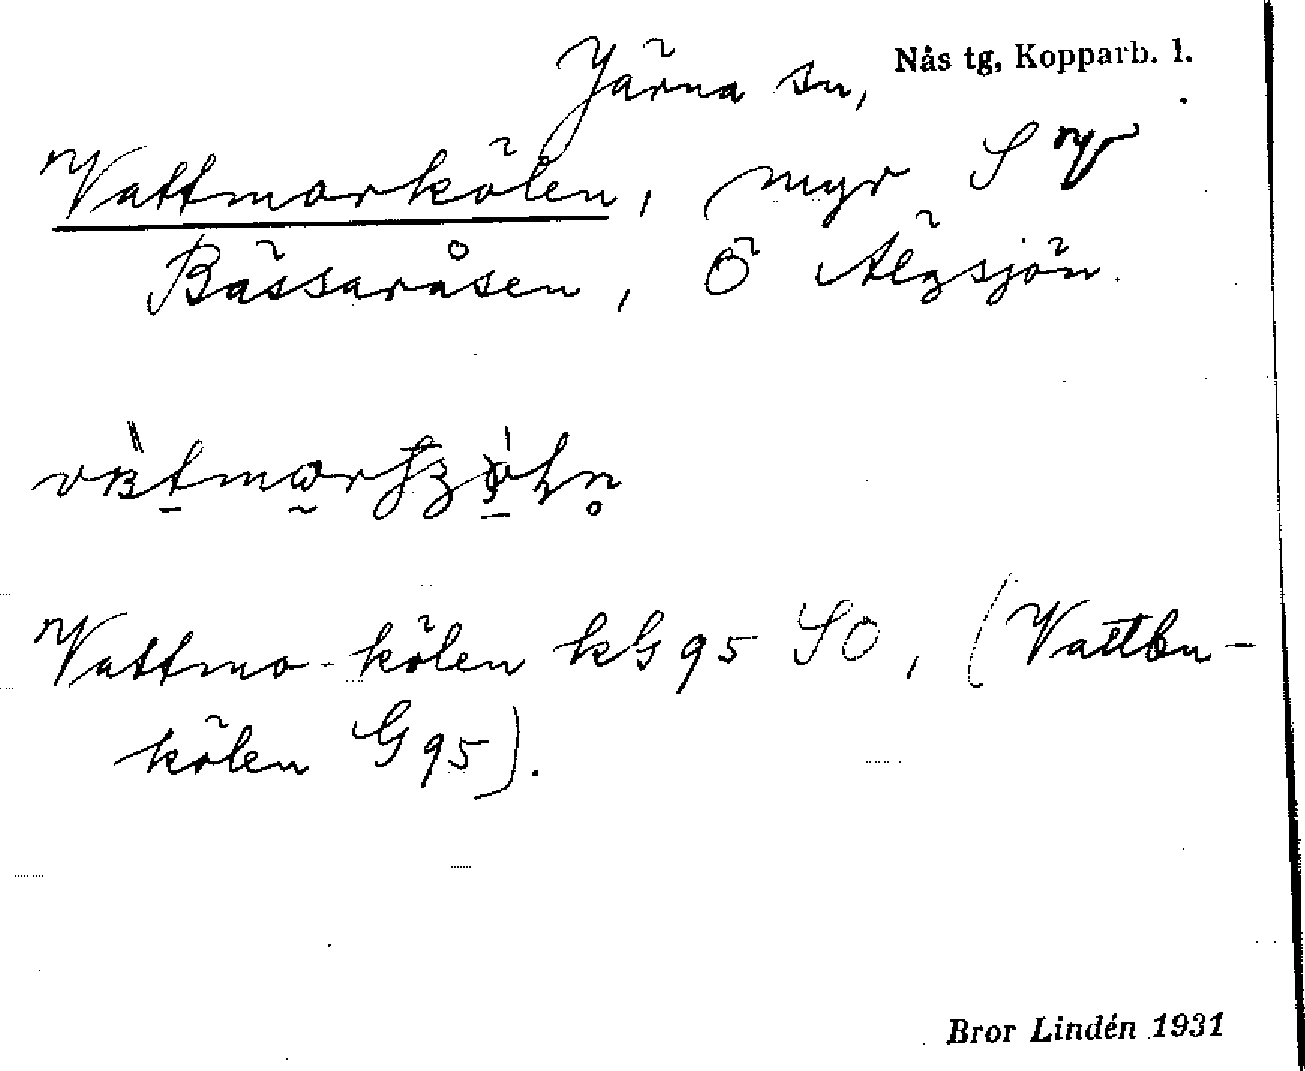 Järna sn, Nås tg, Kopparb. l.
Vattmorkölen, myr S
Bässaråsen, Ö Älgsjön.
Vattmo-kölen kG 95 SO, (Vattbu-
kölen G 95).
Bror Lindén 1931